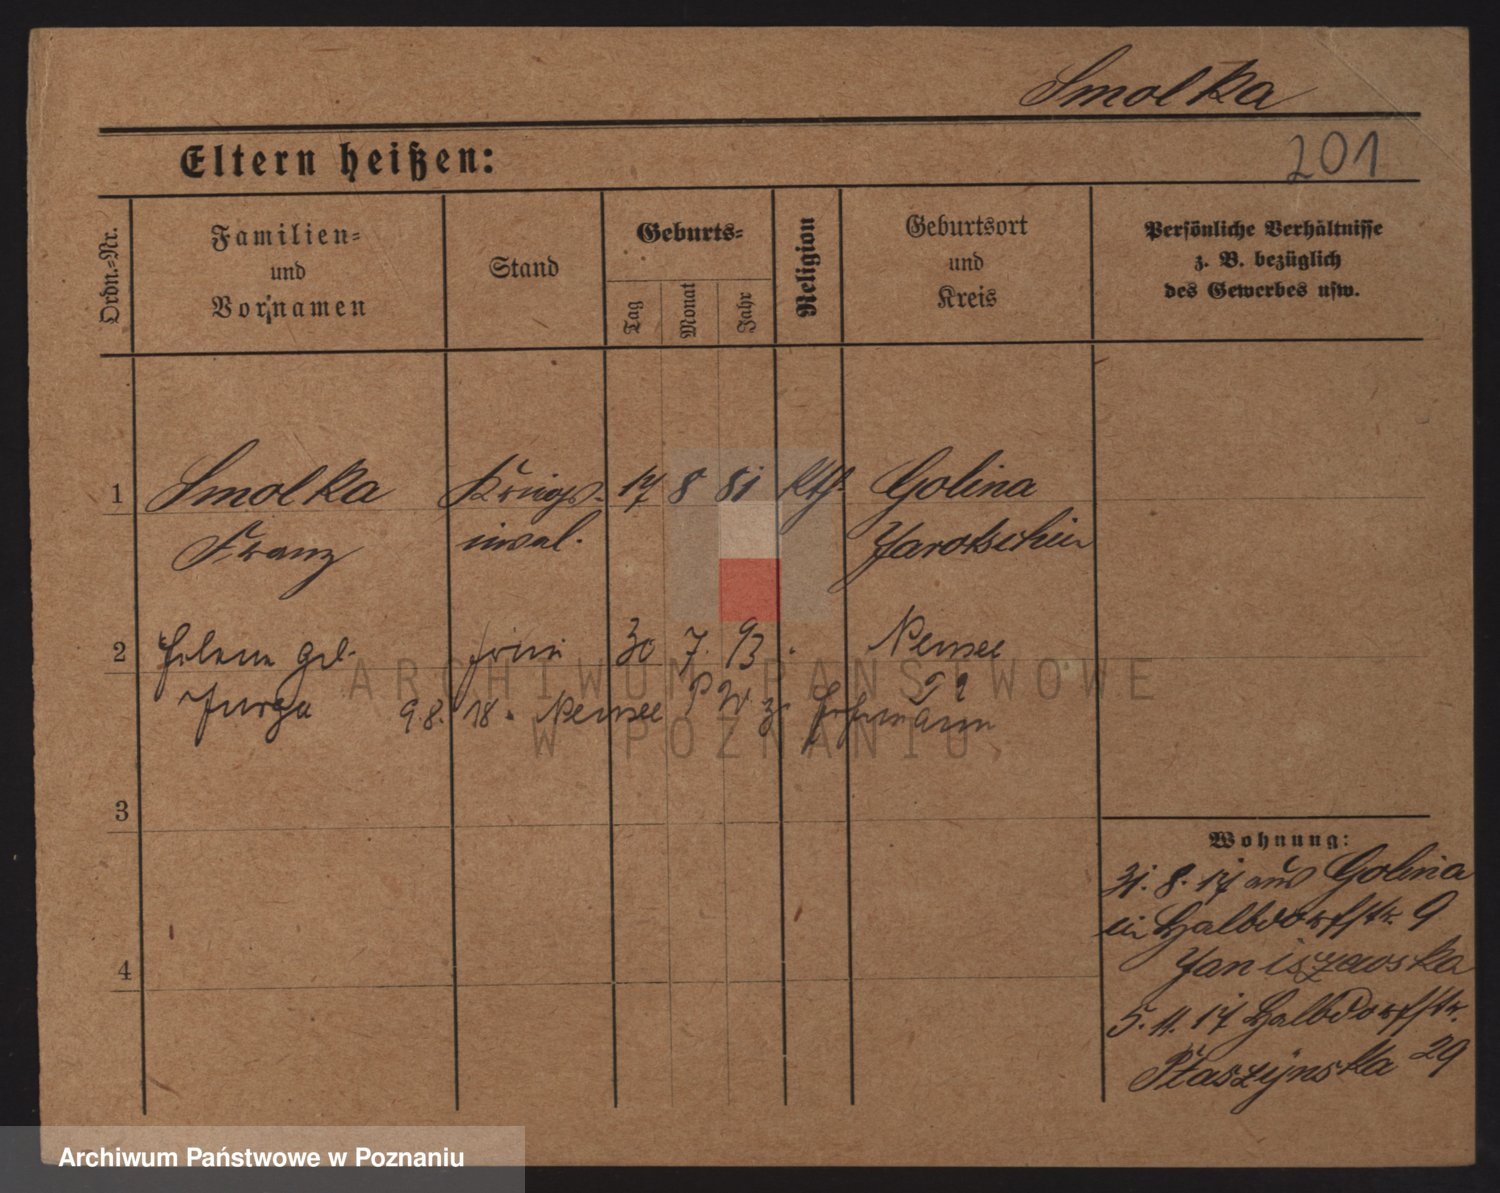 Smolka
Eltern heißen:
201
Ordn.-Nr.
Familien-
und
Vornamen
Stand
Geburts-
Tag
Monat
Jahr
Religion
Geburtsort
und
Kreis
Persönliche Verhältnisse
z. B. bezüglich
des Gewerbes usw.
1 Smolka Kriegs- 17 8 81 kth. Golina
Franz inval. Jarotschin
2 Helene geb. 30 7. 93.
Jurga 9.8.18.
ARCHIWUM PAŃSTWOWE
W POZNANIU
3
4
Wohnung:
31. 8. 17 aus Golina
in Halbdorfstr. 9
Janiszewska
5. 11. 17 Halbdorfstr.
Ptaszynska 29
Archiwum Państwowe w Poznaniu